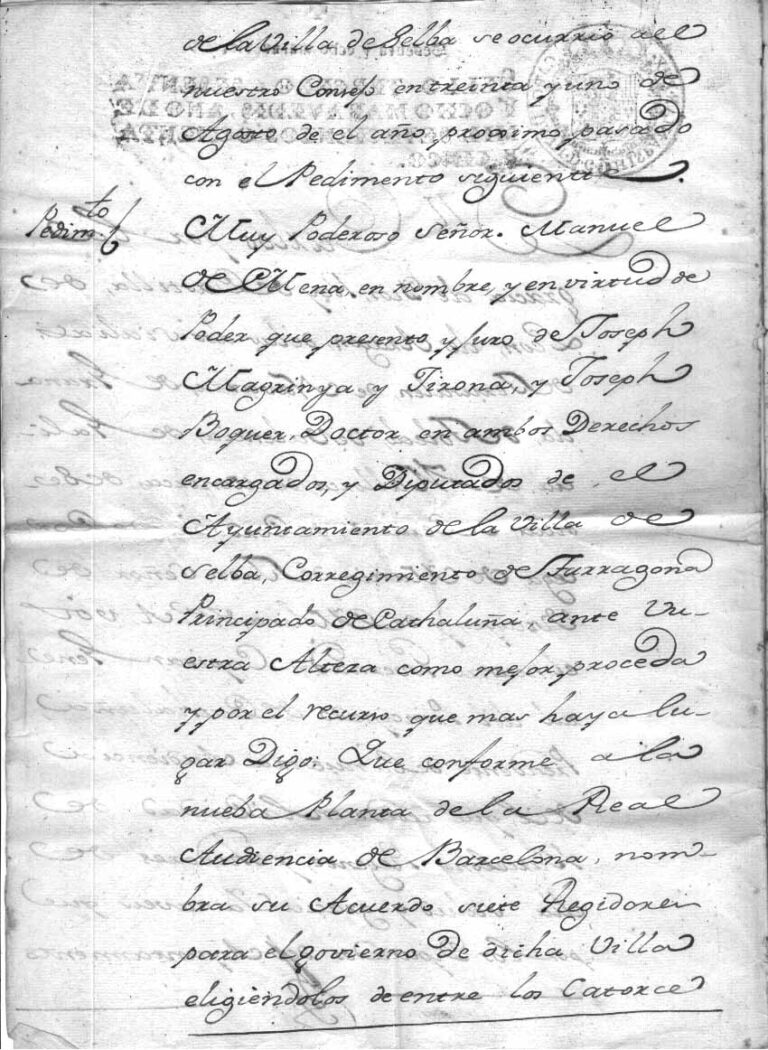 de la Villa de Selba se ocurrio a el
nuestro Consejo en treinta y uno de
Agosto de el año proximo pasado
con el Pedimento siguiente
Pedim.to Muy Poderoso Señor. Manuel
de Mena, en nombre, y en virtud de
Poder que presento y juro de Joseph
Magrinya y Tirona, y Joseph
Boquer, Doctor en ambos Derechos
encargados, y Diputados de el
Ayuntamiento de la Villa de
Selba, Corregimiento de Tarragona
Principado de Cathaluña, ante Vu-
estra Alteza como mejor proceda
y por el recurso que mas haya lu-
gar Digo: Que conforme a la
nueba Planta de la Real
Audiencia de Barcelona, nom-
bra su Acuerdo siete Regidores
para el govierno de dicha Villa
eligiendolos de entre los Catorce